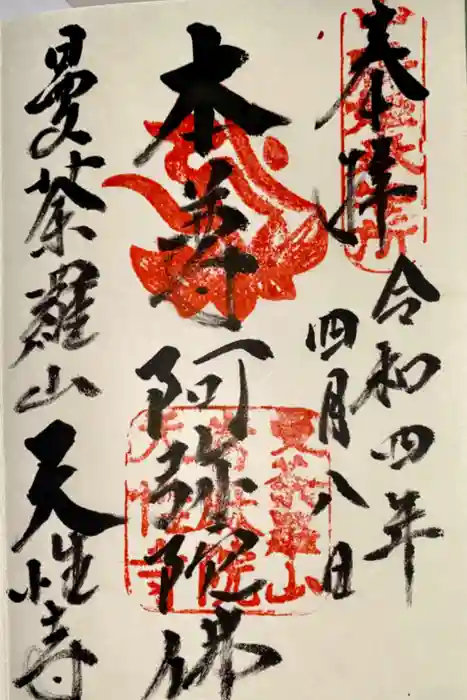 奉拝
令和四年
四月八日
本尊阿弥陀佛
曼荼羅山天性寺